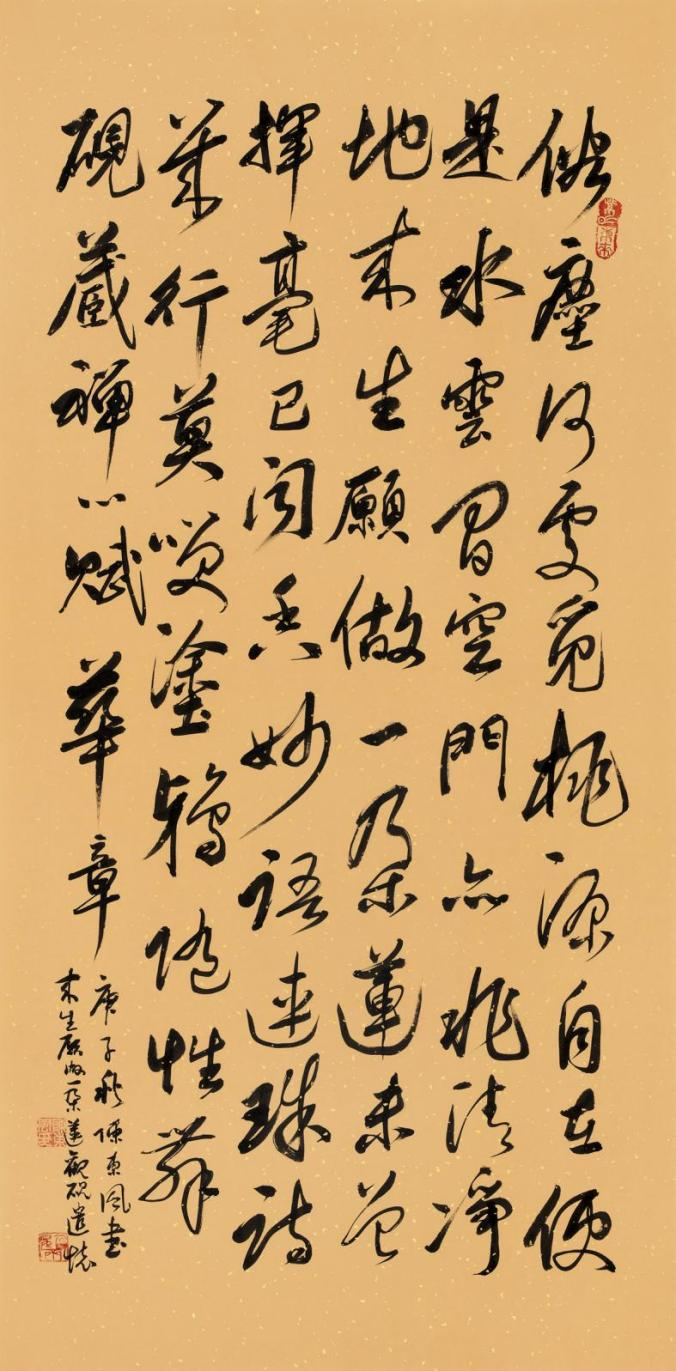 俗塵何處覓桃源自在便
是水雲間空門亦非清淨
地來生願做一朵蓮未曾
揮毫已聞香妙語連珠詩
幾行莫笑塗鴉隨性舞
硯藏禪心賦華章
庚子秋陳東風書
來生願做一朵蓮觀硯遣懷